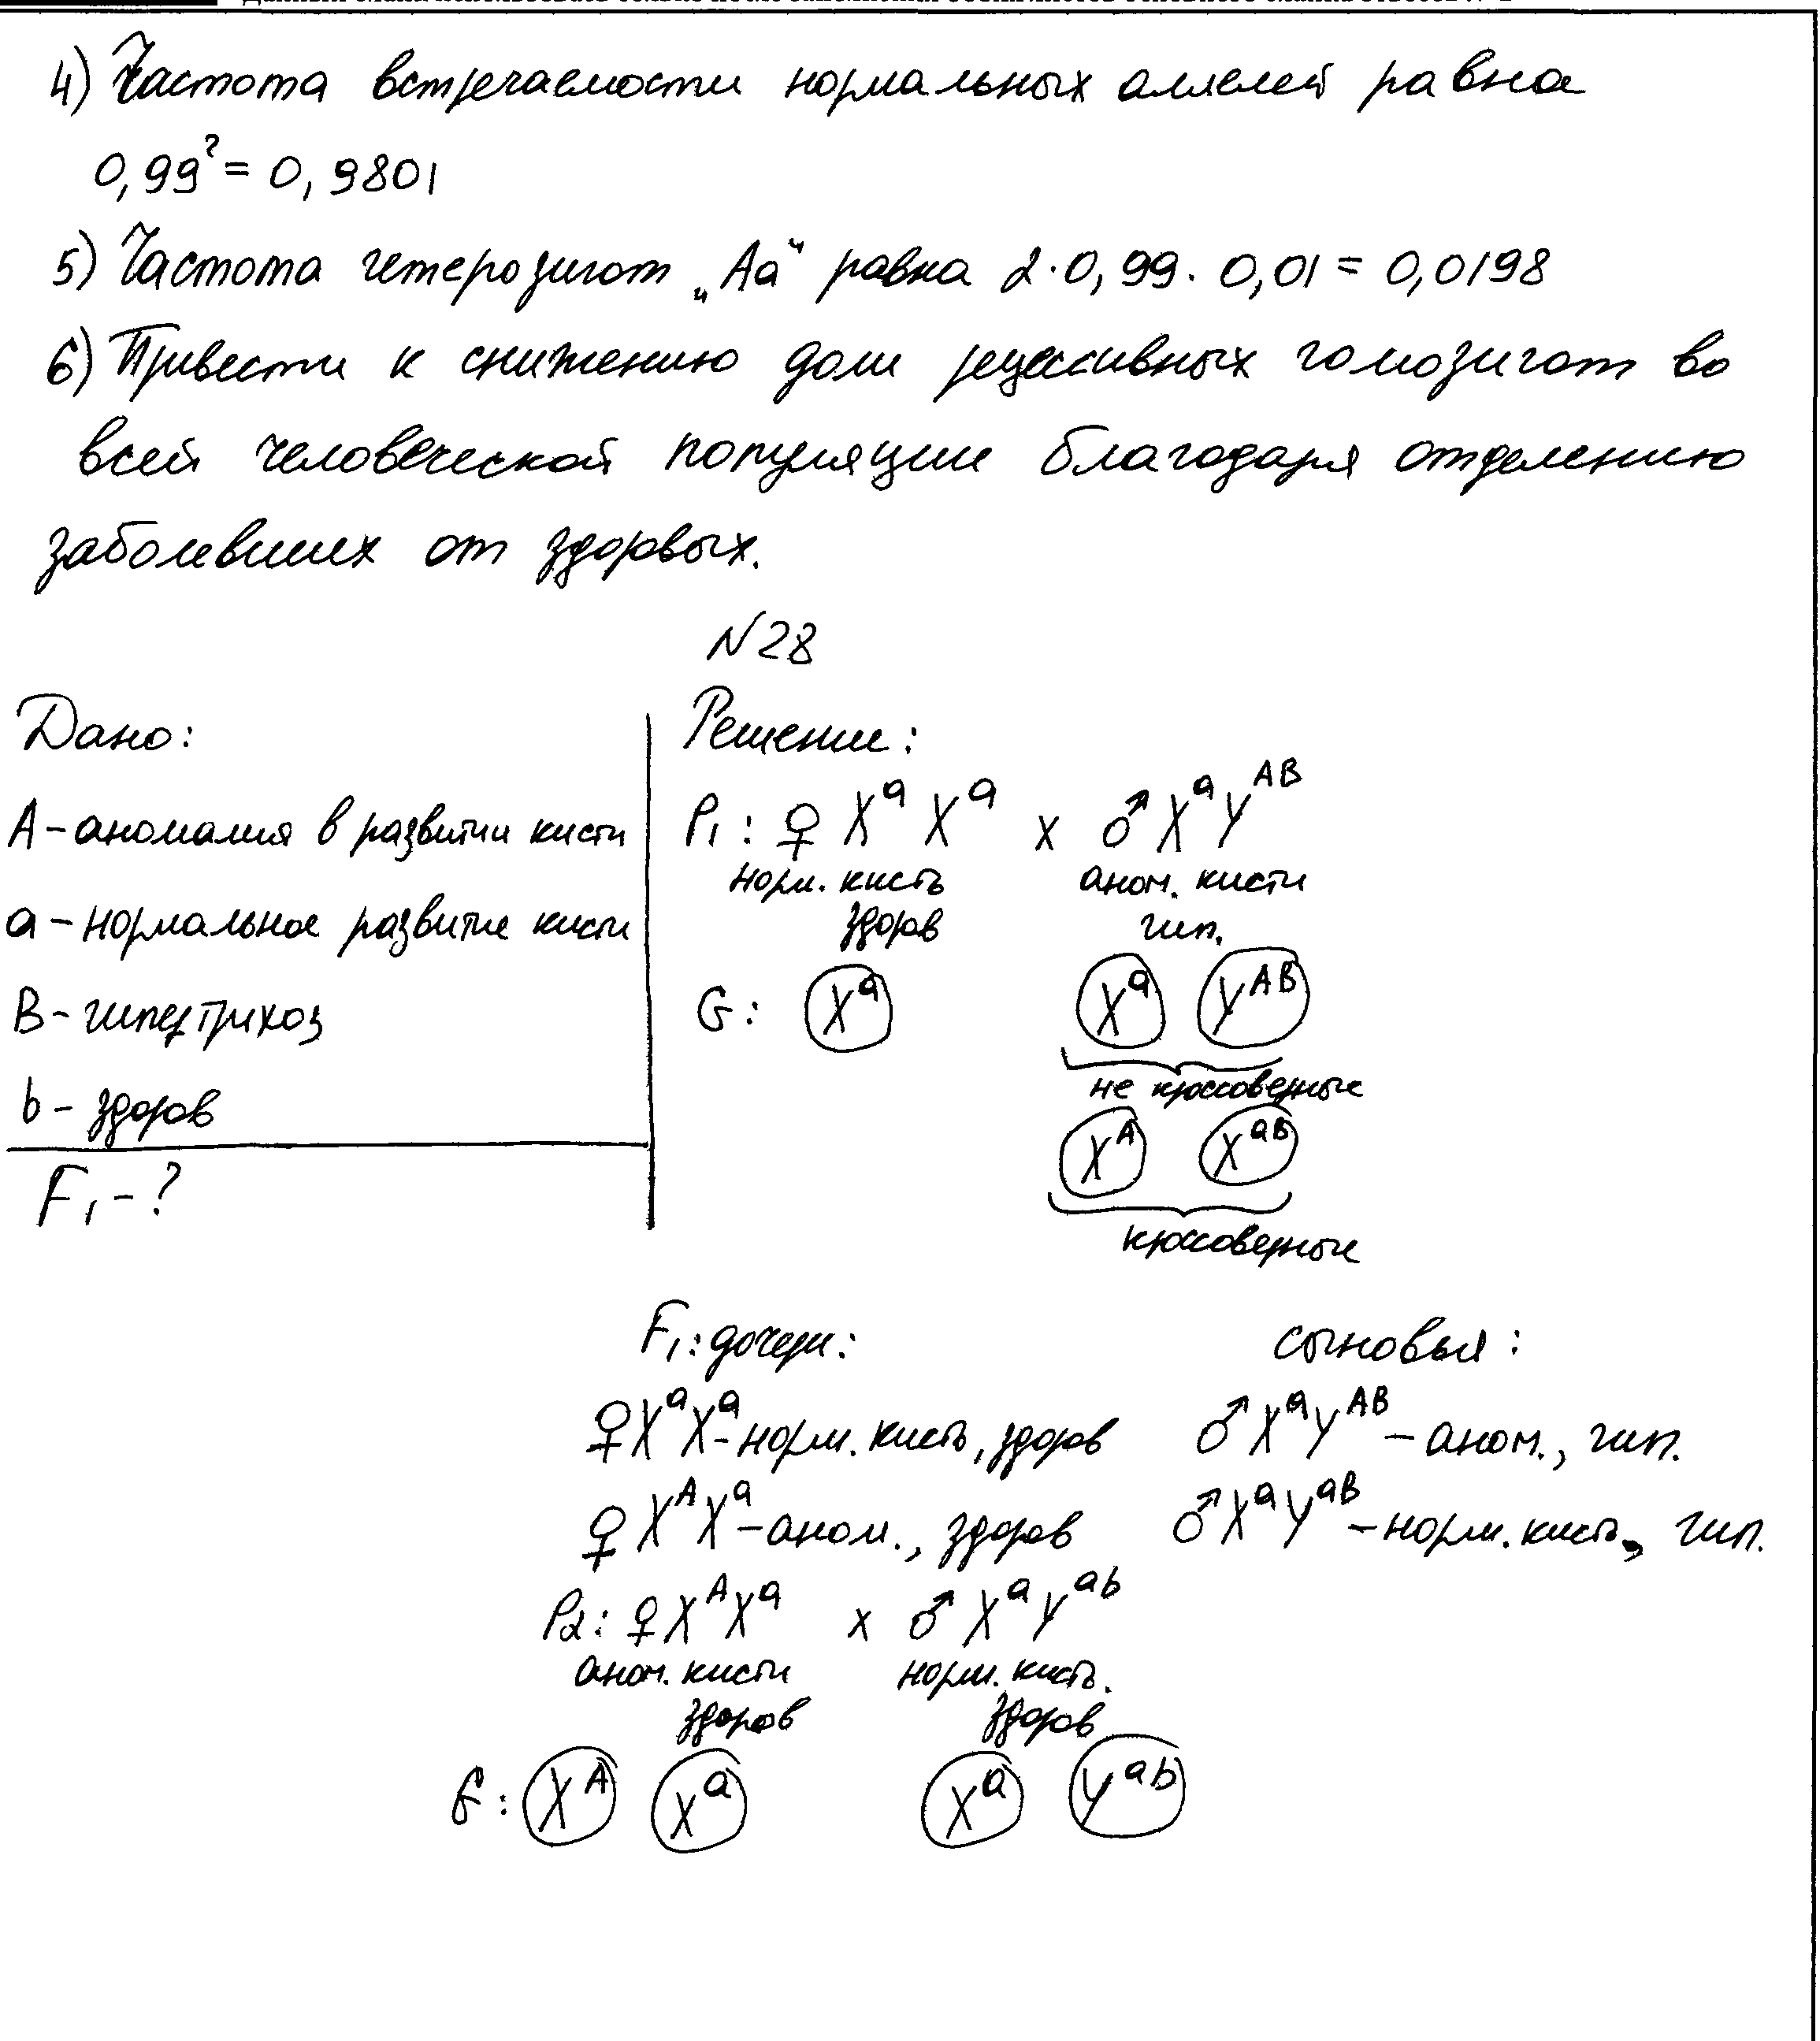 4) Частота встречаемости нормальных аллелей равна
0,99² = 0,9801
5) Частота гетерозигот „Аа“ равна 2·0,99·0,01 = 0,0198
6) Привести к снижению доли рецессивных гомозигот во
всей человеческой популяции благодаря отделению
заболевших от здоровых.
№28
Дано:
А – аномалия в развитии кисти
а – нормальное развитие кисти
В – гипертрихоз
b – здоров
F₁ – ?
Решение:
P₁: ♀ XᵃXᵃ x ♂ XᵃYᴬᴮ
норм. кисть аном. кисти
здоров гип.
G: Xᵃ Xᵃ Yᴬᴮ
не кроссоверные
Xᴬ Xᵃᴮ
кроссоверные
F₁: дочери: сыновья:
♀XᵃXᵃ – норм. кисть, здоров ♂XᵃYᴬᴮ – аном., гип.
♀XᴬXᵃ – аном., здоров ♂XᵃYᵃᴮ – норм. кисть, гип.
P2: ♀XᴬXᵃ x ♂ XᵃYᵃᵇ
аном. кисти норм. кисть.
здоров здоров
G: Xᴬ Xᵃ Xᵃ Yᵃᵇ